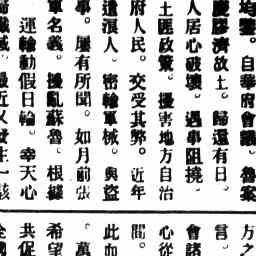 均鑒。自華府會議。魯案
慶膠濟故土。歸還有日。
人居心破壞。遇事阻撓。
土匪政策。擾害地方自治
府人民。交受其弊。近年
遣浪人。密輸軍械。與盜
事。屢有所聞。如月前張
軍名義。擾亂蘇魯。根據
運輸動假日輪。幸天心
殲滅。最近又發生一駭
方之
言。
會諸
心從
間。
此血
。萬
希望
共促
全國